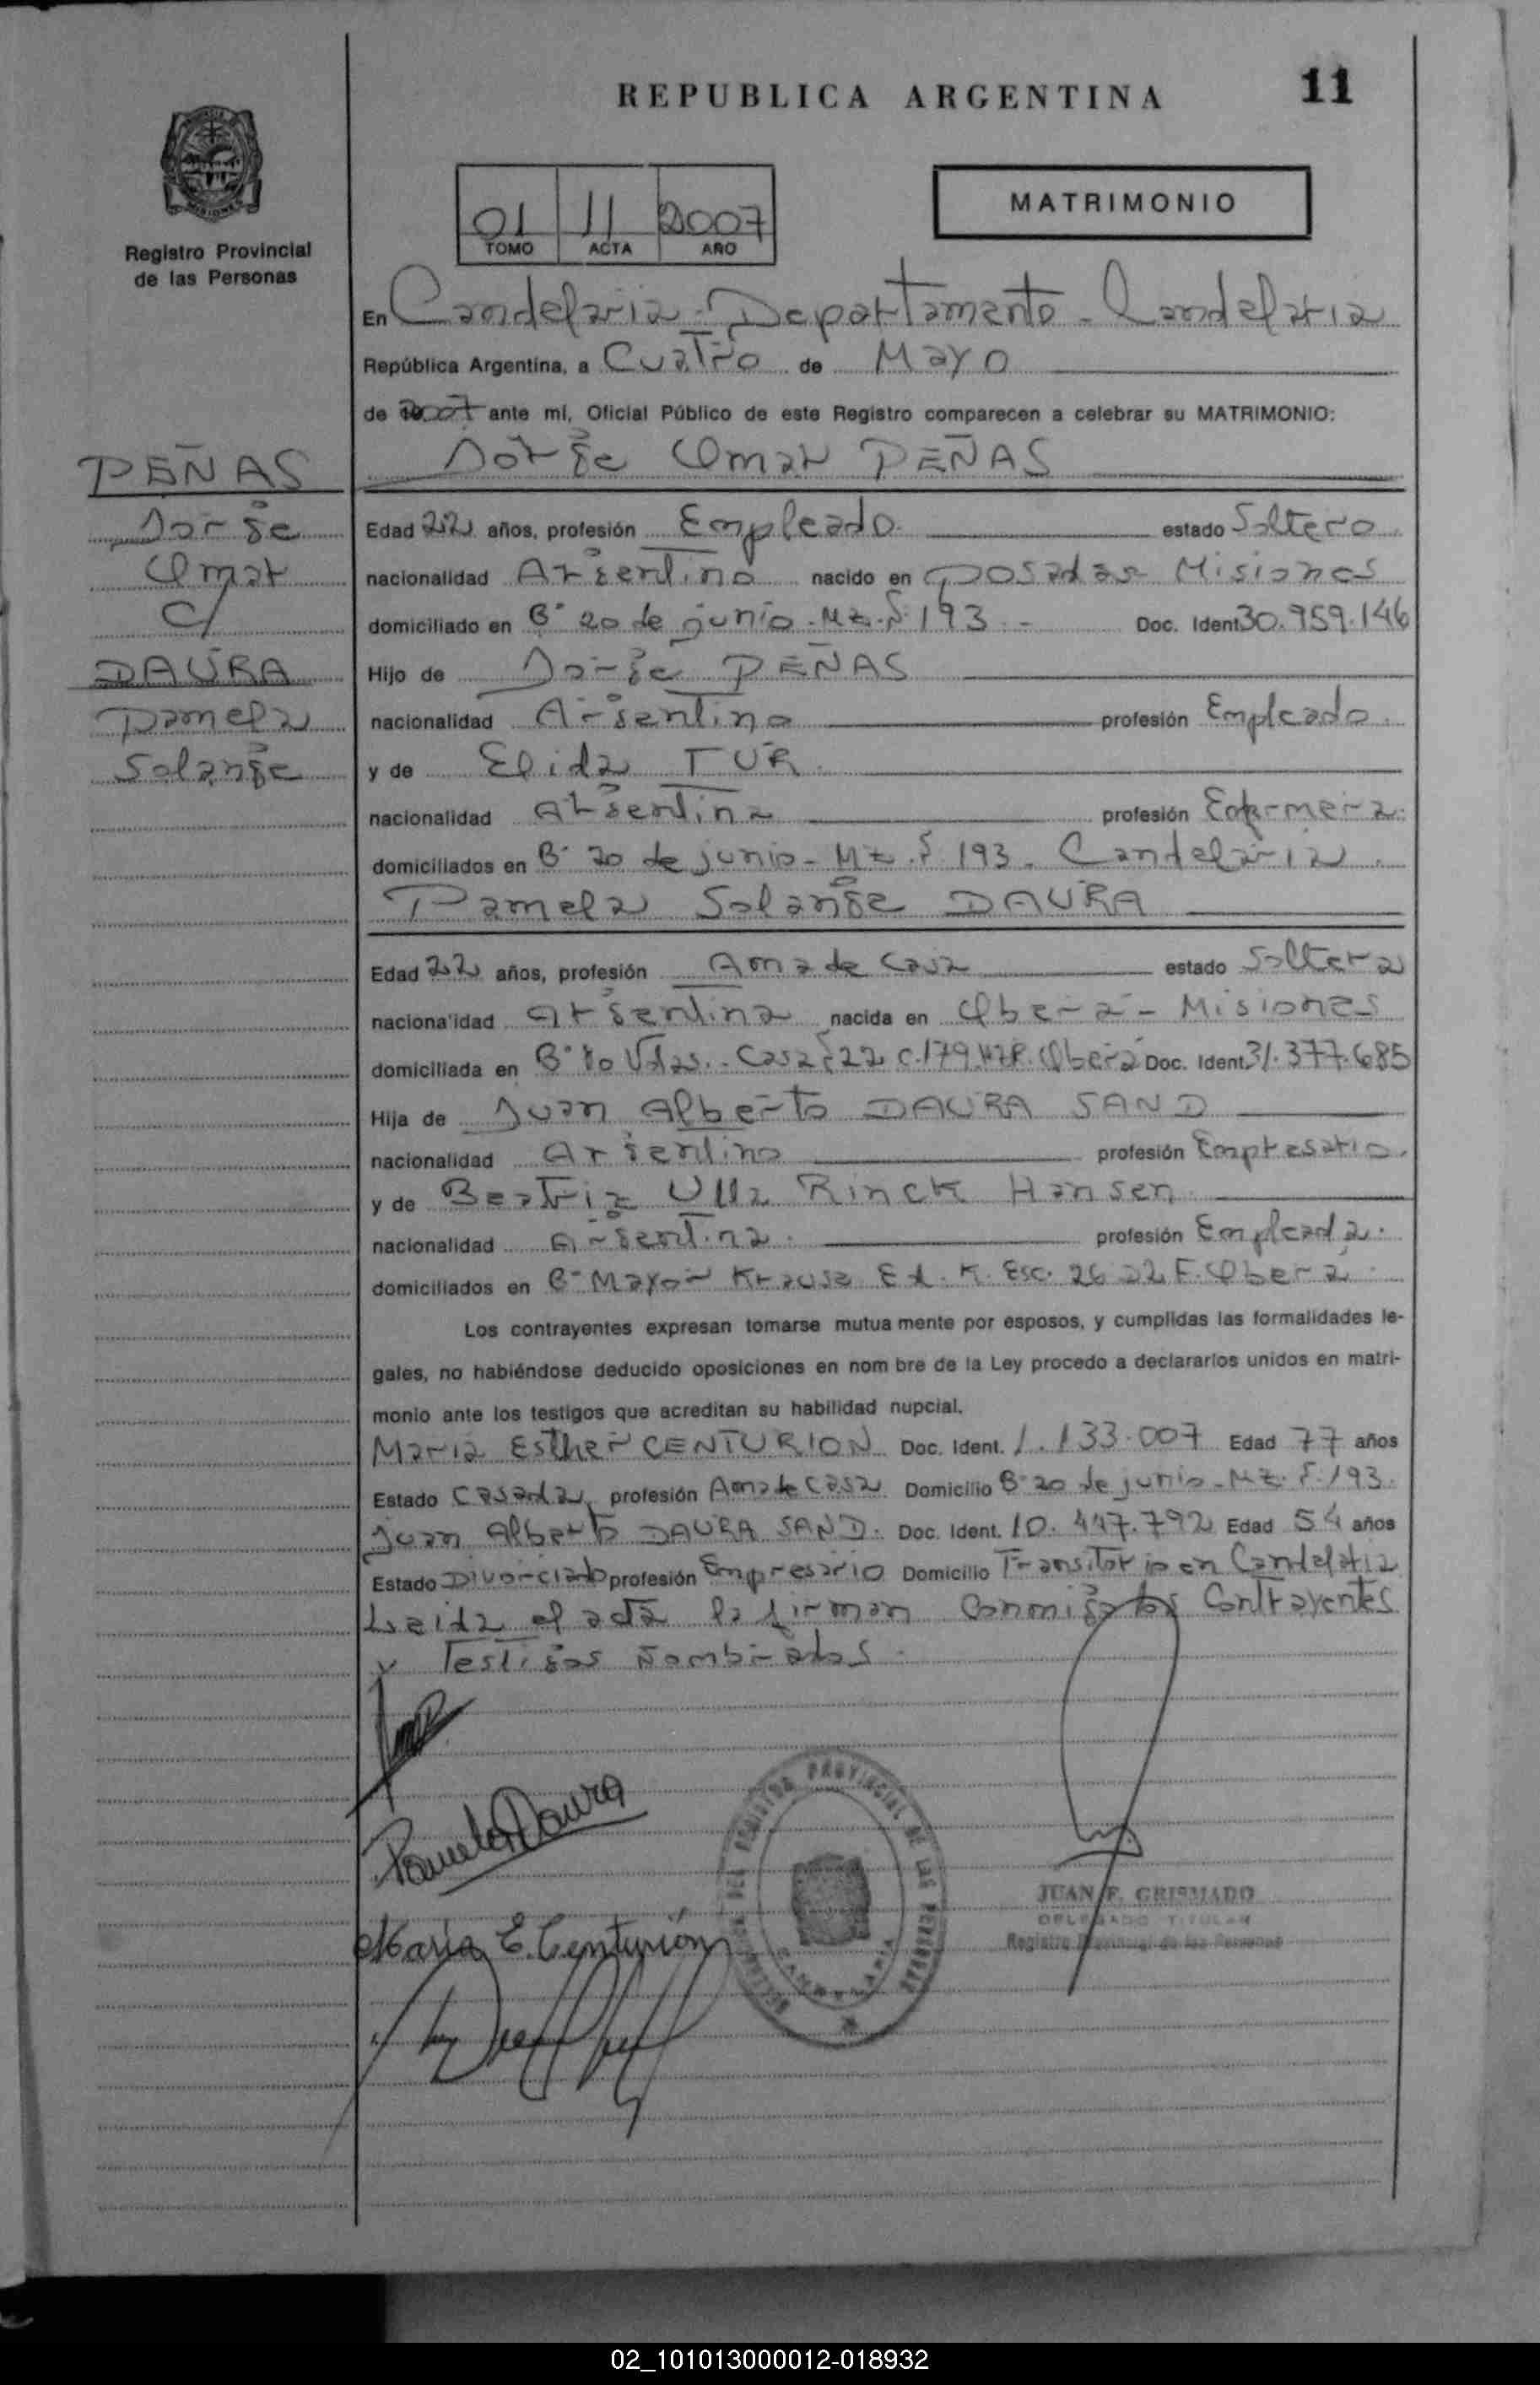 REPUBLICA ARGENTINA
11
Registro Provincial
de las Personas
01 11 2007
TOMO ACTA AÑO
MATRIMONIO
En Candelaria - Departamento - Candelaria
República Argentina, a Cuatro de Mayo
de 2007 ante mí, Oficial Público de este Registro comparecen a celebrar su MATRIMONIO:
Jorge Omar PEÑAS
PEÑAS
Jorge
Omar
c/
DAURA
Pamela
Solange
Edad 22 años, profesión Empleado estado Soltero
nacionalidad Argentino nacido en Posadas Misiones
domiciliado en B° 20 de junio - Mz. 193 - Doc. Ident 30.959.146
Hijo de Jorge PEÑAS
nacionalidad Argentino profesión Empleado.
y de Elida TUR
nacionalidad Argentina profesión Enfermera.
domiciliados en B° 20 de junio - Mz. 193 - Candelaria.
Pamela Solange DAURA
Edad 22 años, profesión Ama de Casa estado Soltera
nacionalidad Argentina nacida en Oberá - Misiones
domiciliada en B° Casa 22 C.179 Oberá Doc. Ident. 31.377.685
Hija de Juan Alberto DAURA SAND
nacionalidad Argentino profesión Empresario.
y de Beatriz Ulla Rinck Hansen
nacionalidad Argentina. profesión Empleada.
domiciliados en B° Mayor Krause Ed. K. Esc. 26 F. Oberá.
Los contrayentes expresan tomarse mutua mente por esposos, y cumplidas las formalidades le-
gales, no habiéndose deducido oposiciones en nom bre de la Ley procedo a declararlos unidos en matri-
monio ante los testigos que acreditan su habilidad nupcial.
Maria Esther CENTURION Doc. Ident. 1.133.007 Edad 77 años
Estado Casada profesión Ama de Casa Domicilio B° 20 de junio - Mz. 193.
Juan Alberto DAURA SAND. Doc. Ident. 10.447.792 Edad 54 años
Estado Divorciado profesión Empresario Domicilio Transitorio en Candelaria
Leida el acta la firman conmigo los Contrayentes
y Testigos Nombrados.
Pamela Daura
Maria E. Centurión
REGISTRO PROVINCIAL DE LAS PERSONAS
CANDELARIA
JUAN F. GRISMADO
DELEGADO TITULAR
Registro Provincial de las Personas
02_101013000012-018932